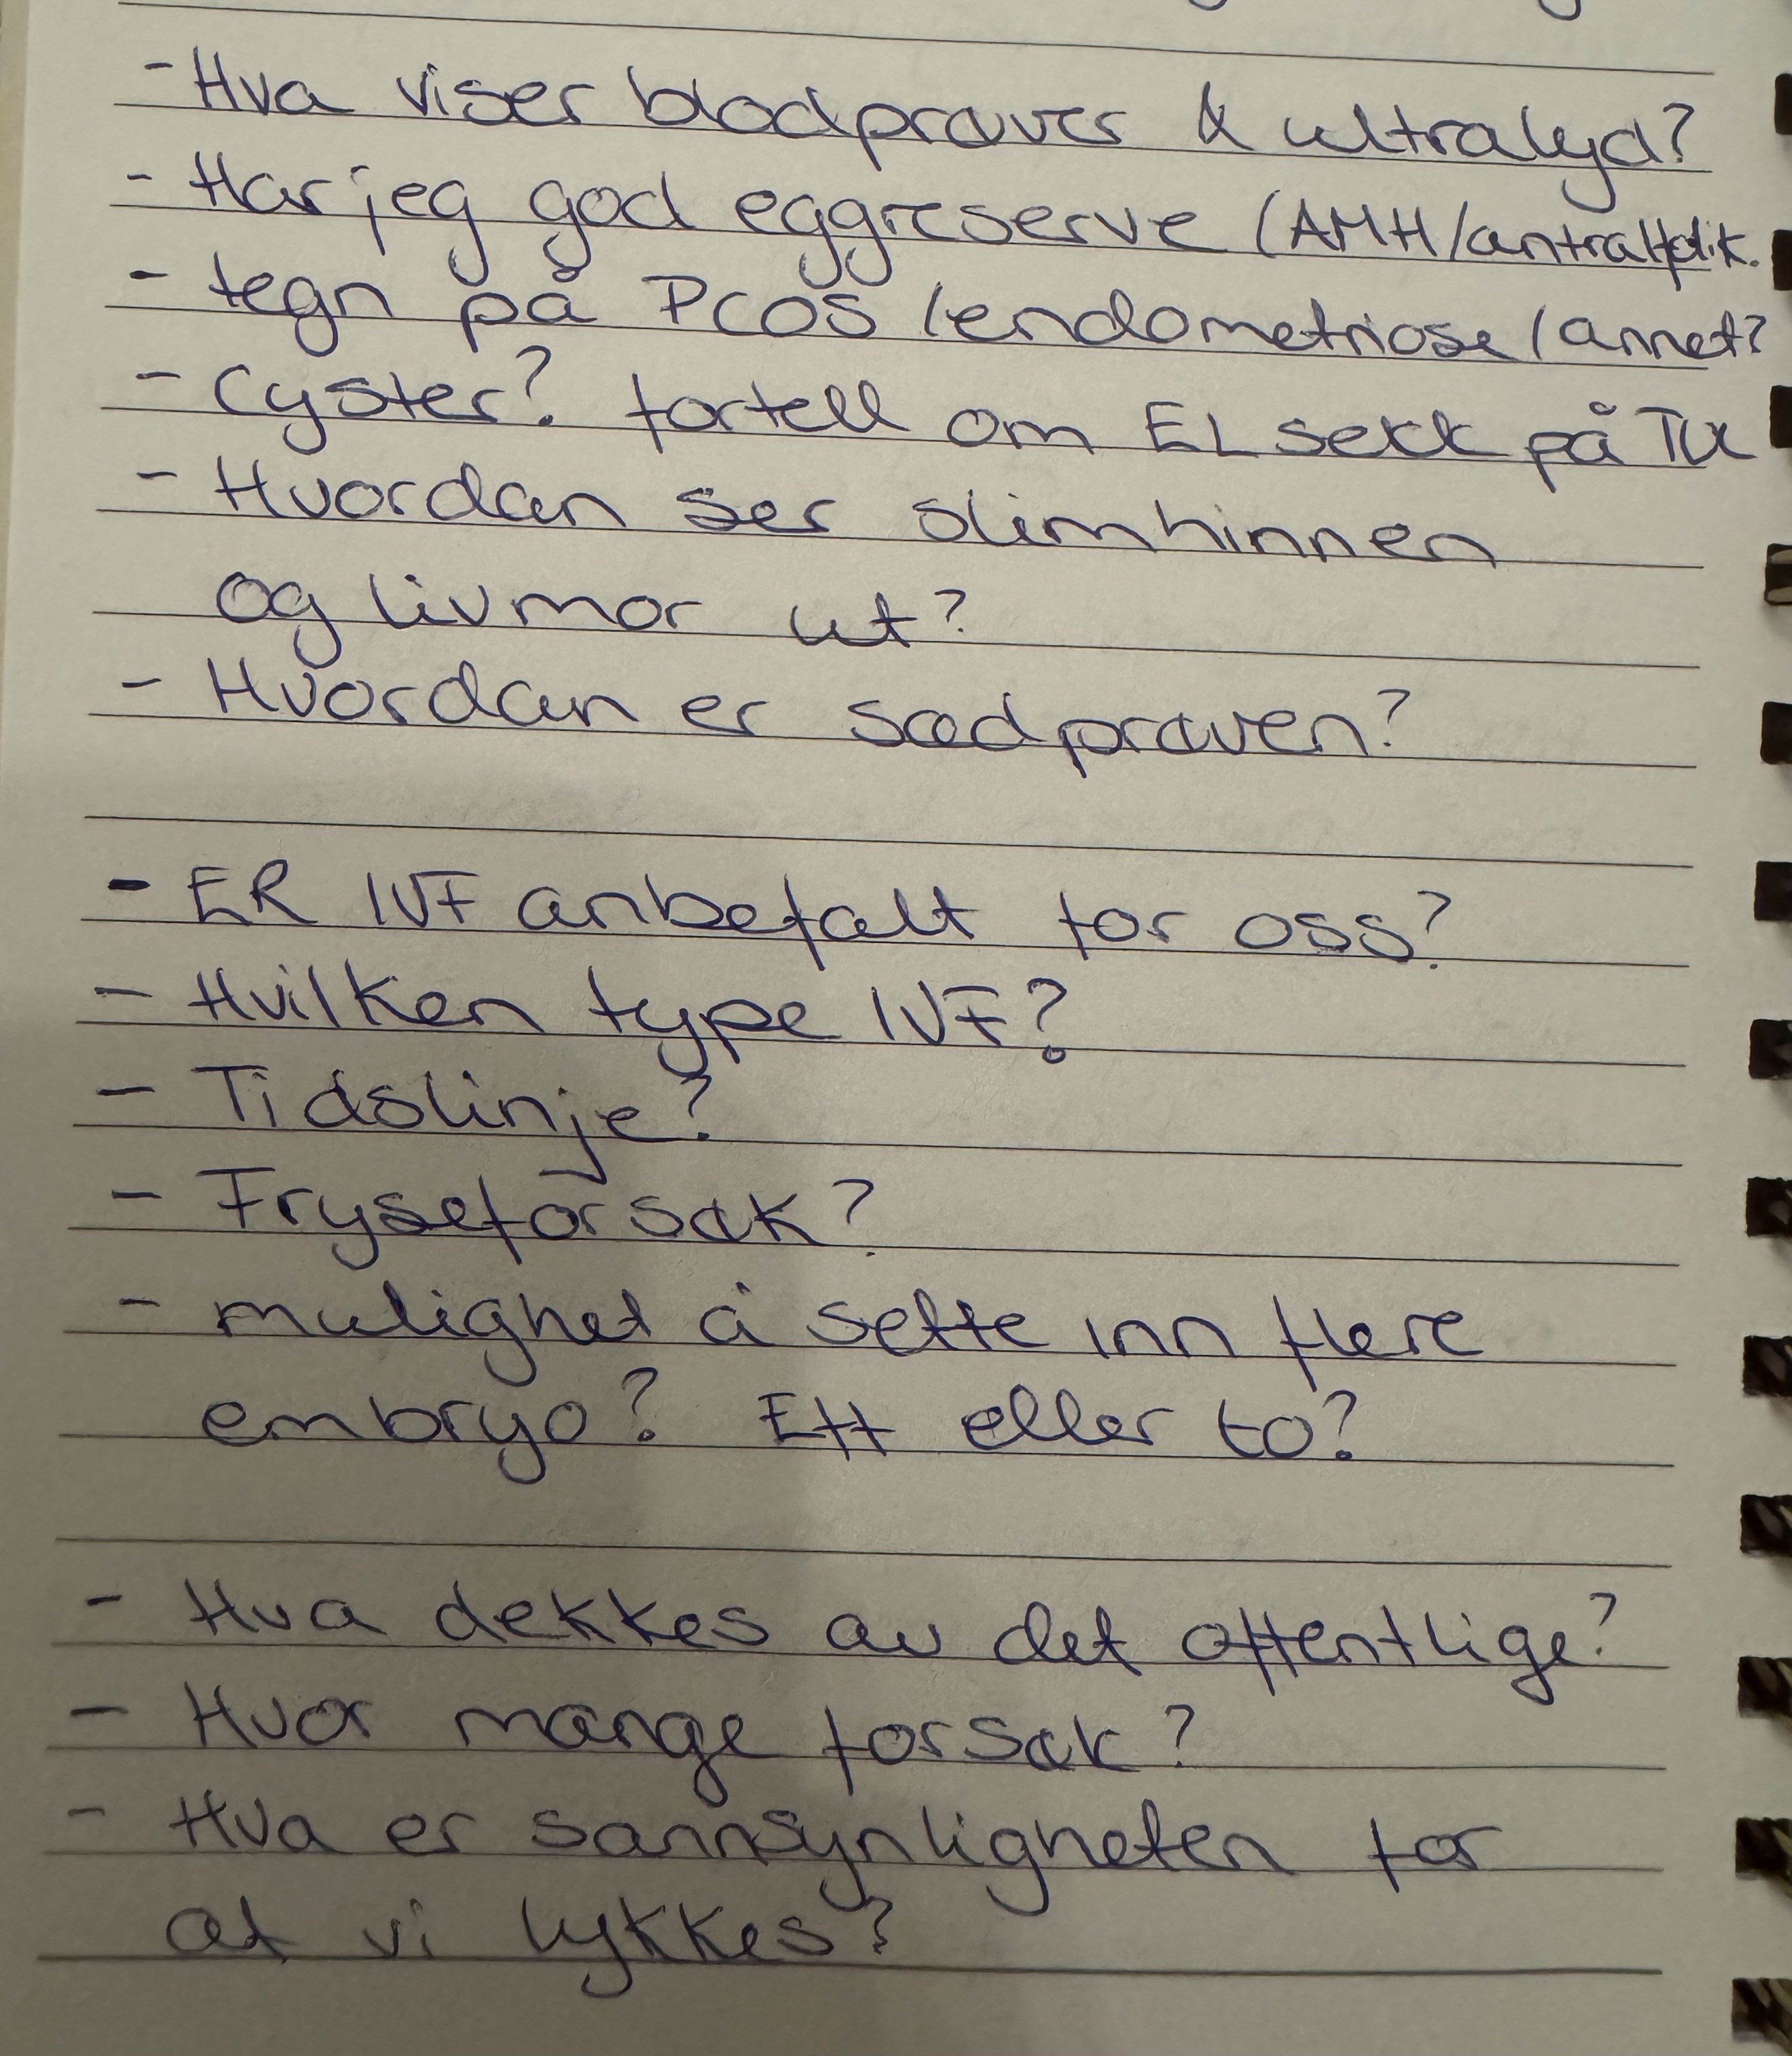 - Hva viser blodprøver & ultralyd?
- Har jeg god eggreserve (AMH/antralfolik.
- tegn på PCOS /endometriose/annet?
- Cyster? fortell om EL sekk på TU
- Hvordan ser slimhinnen
og livmor ut?
- Hvordan er sædprøven?
- ER IVF anbefalt for oss?
- Hvilken type IVF?
- Tidslinje?
- Fryseforsøk?
- mulighet å sette inn flere
embryo? Ett eller to?
- Hva dekkes av det offentlige?
- Hvor mange forsøk?
- Hva er sannsynligheten for
at vi lykkes?